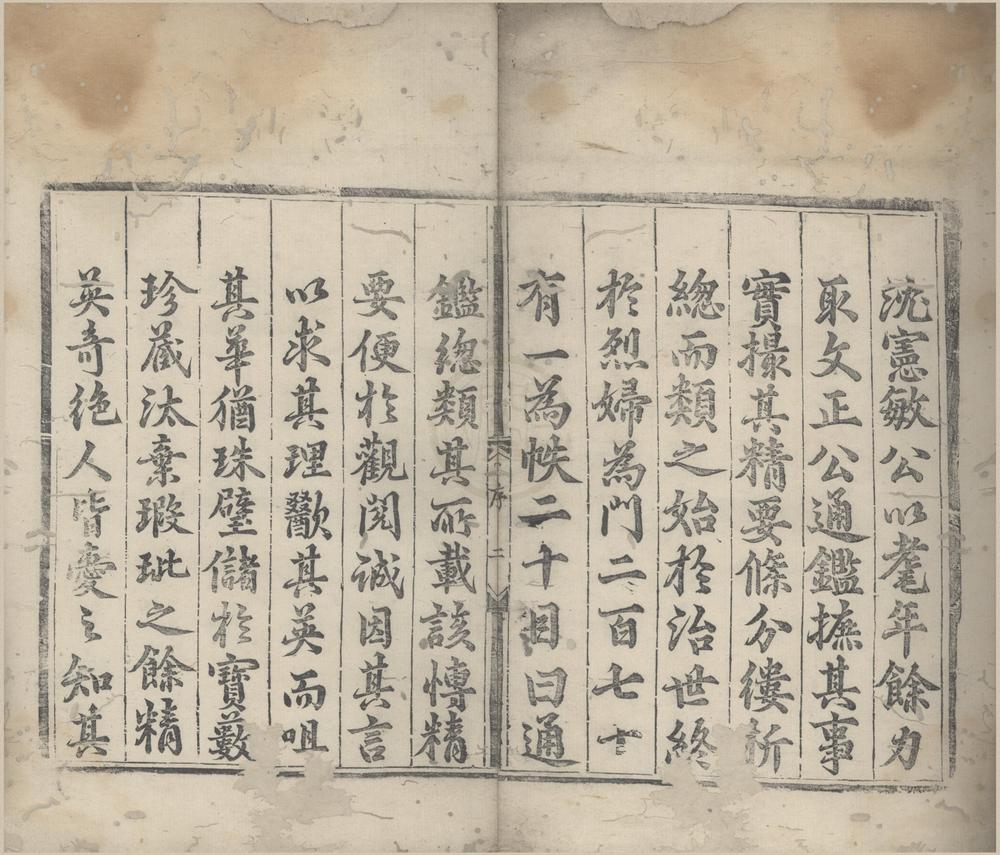 沈憲敏公以耄年餘力
取文正公通鑑摭其事
實撮其精要條分縷析
緫而類之始扵治世終
扵烈婦為門二百七十
有一為帙二十目曰通
鑑緫類其所載該博精
要便扵觀閱诚因其言
以求其理歠其英而咀
其華猶珠璧儲扵寶藪
珍蔵汰棄瑕玼之餘精
英奇絶人皆愛之知其
序
二